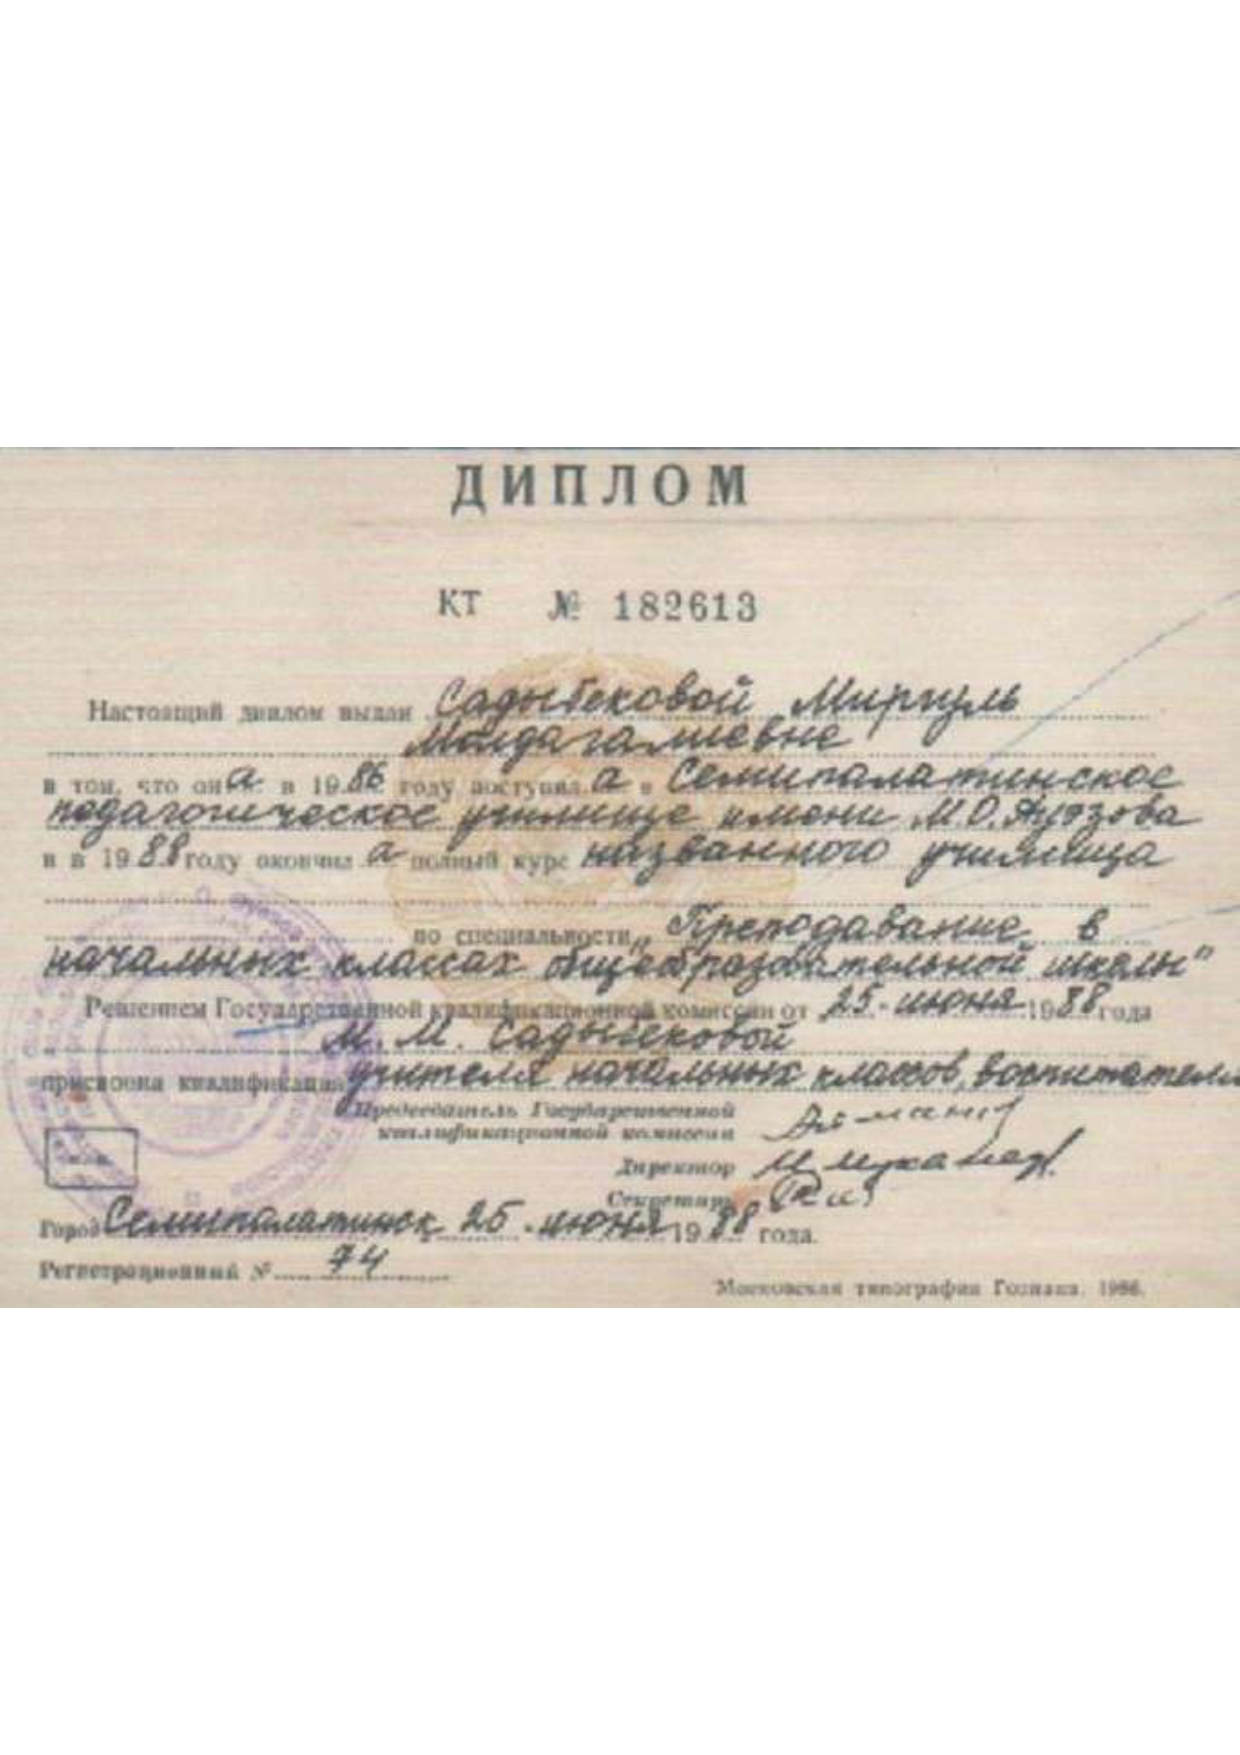 ДИПЛОМ
КТ № 182613
Настоящий диплом выдан Садыбековой Миргуль
Молдагалиевне
в том, что она в 1986 году поступила в Семипалатинское
педагогическое училище имени М.О.Ауэзова
и в 1988 году окончила полный курс названного училища
по специальности „Преподавание в
начальных классах общеобразовательной школы"
Решением Государственной квалификационной комиссии от 25 июня 1988 года
М. М. Садыбековой
присвоена квалификация учителя начальных классов, воспитателя
Председатель Государственной
квалификационной комиссии
Директор
Секретарь
Город Семипалатинск 25 июня 1988 года.
Регистрационный № 74
Московская типография Гознака. 1986.